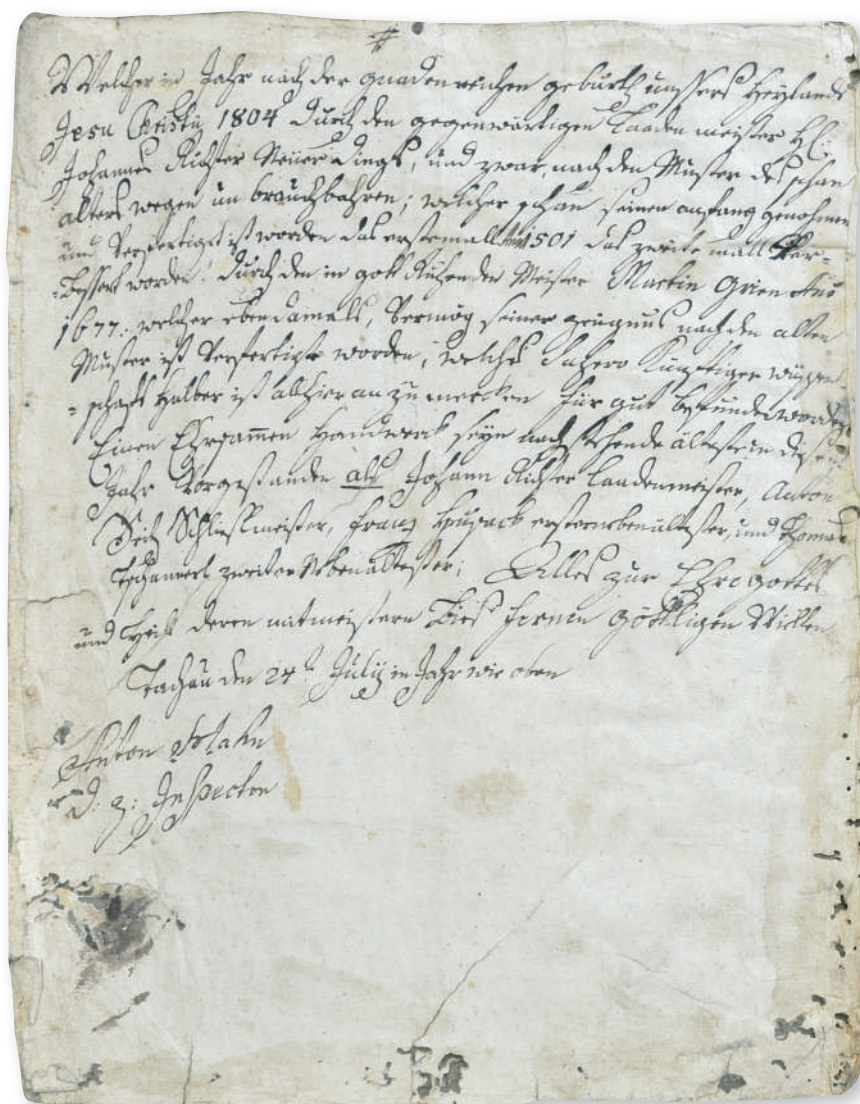 Welcher in Jahr nach der gnadenreichen geburth unssers Heylands
Jesu Christy 1804 durch den gegenwärtigen Laaden meister H:
Johannes Richter Neuer dings, und zwar, nach den Muster des schon
alters wegen un brauchbahren; welcher schon seinen anfang genohmen
und Verfertiget ist worden das erstemall 1501 das zweite mall Ver-
-bessert worden durch den in gott Ruhenden Meister Martin Grien
1677: welcher eben damals, Vermög seiner zeugnus nach den alten
Muster ist Verfertiget worden; welches dahero Künftiger wissen-
-schaft halber ist allhier an zu mercken für gut befunden worden
Einen Ehrsammen Handwerck seyn nachstehende älteste in diesen
Jahr Vorgestanden als Johann Richter Laadenmeister, Anton
Schliessmeister, Franz ersternebenältester, und Thomas
zweiter Nebenältester; Alles zur Ehre gottes
und deren mitmeistern göttligen Willen
Tachau den 24t July in Jahr wie oben
Anton
d: z: Inspector